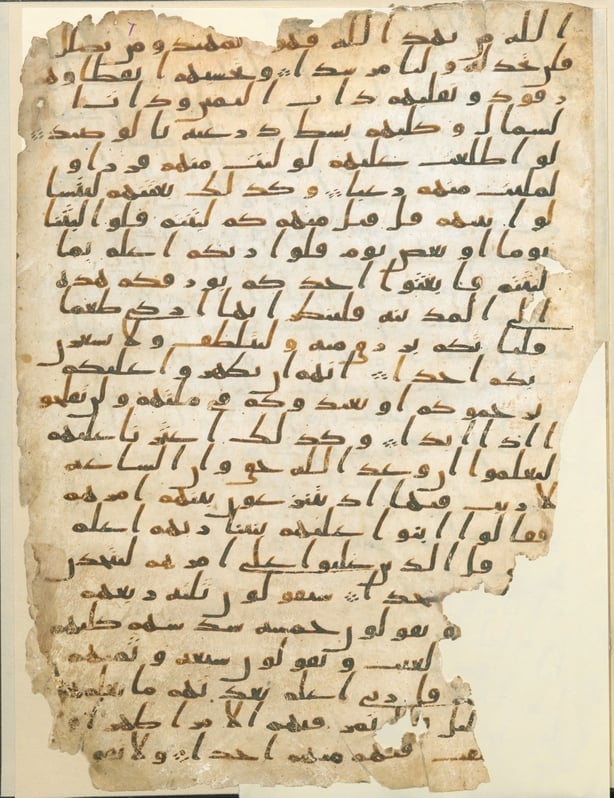 ا لله من يهد ا لله فهو المهتد و من يضلل
فلن تجد له و ليا مر شدا و تحسبهم ا يقظا و هم
ر قود و نقلبهم ذا ت ا ليمين و ذا ت ا
لشما ل و كلبهم بسط ذ ر عيه با لو صيد
لو ا طلعت عليهم لو ليت منهم فر ر ا و
لملئت منهم ر عبا و كذ لك بعثنهم ليتسا
لو ا بينهم قل قئل منهم كم لبثتم قلو ا لبثنا
يو ما ا و بعض يو م قلو ا ر بكم ا علم بما
لبثتم فا بعثو ا ا حد كم بو ر قكم هذه
ا لى ا لمد ينة فلينظر ا يها ا ز كى طعما
فليا تكم بر ز ق منه و ليتلطف و لا يشعر ن
بكم ا حد ا ا نهم ا ن يظهر و ا عليكم
ير جمو كم ا و يعيد و كم في ملتهم و لن تفلحو
ا ا ذ ا ا بد ا و كذ لك ا عثر نا عليهم
ليعلمو ا ا ن و عد ا لله حق و ا ن ا لسا عة
لا ر يب فيها ا ذ يتنز عو ن بينهم ا مر هم
فقا لو ا ا بنو ا عليهم بنينا ر بهم ا علم
قل ا لذ ين غلبو ا على ا مر هم لنتخذ ن
جد ا سيقو لو ن ثلثة ر بعهم
و يقو لو ن خمسة سد سهم كلبهم
لغيب و يقو لو ن سبعة و ثمنهم
قل ر بي ا علم بعد تهم ما يعلمهم
ليل تمر فيهم ا لا مر ا ظهر ا
فيهم منهم ا حد ا و لا تقو